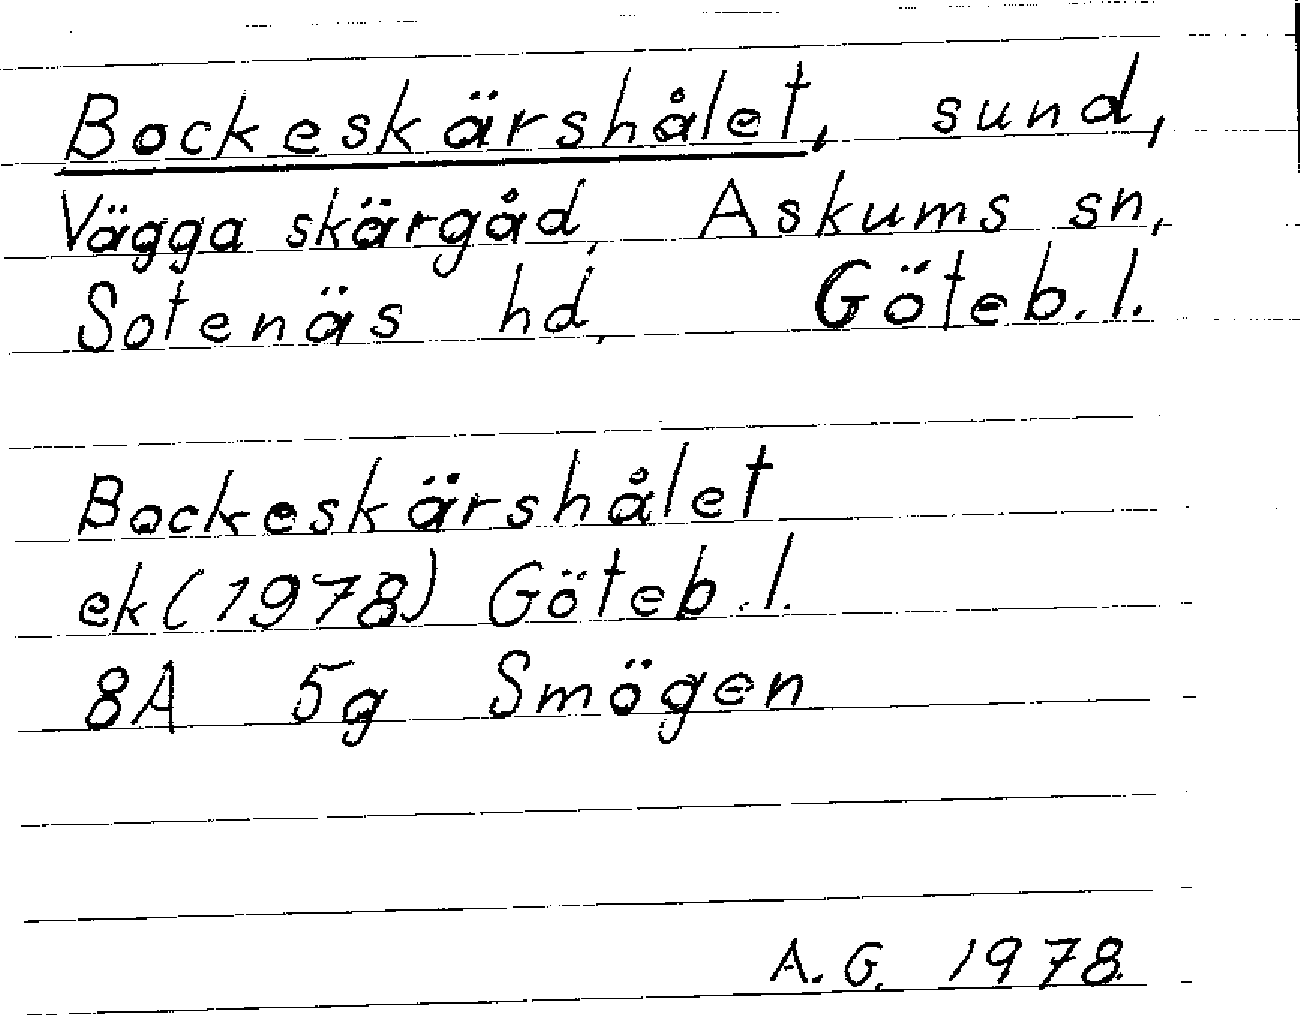 Bockeskärshålet, sund,
Vägga skärgåd, Askums sn,
Sotenäs hd, Göteb. l.
Bockeskärshålet
ek (1978) Göteb. l.
8A 5g Smögen
A. G. 1978